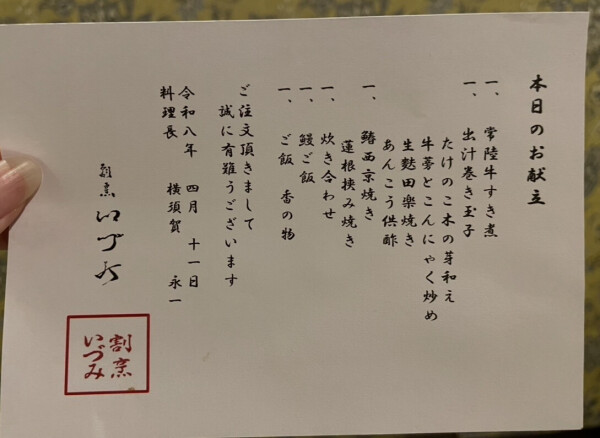 本日のお献立
一、常陸牛すき煮
一、出汁巻き玉子
たけのこ木の芽和え
牛蒡とこんにゃく炒め
生麩田楽焼き
あんこう供酢
一、鰆西京焼き
蓮根挟み焼き
一、炊き合わせ
一、鰻ご飯
一、ご飯 香の物
ご注文頂きまして
誠に有難うございます
令和八年 四月 十一日
料理長 横須賀 永一
割烹 いづみ
割烹
いづみ